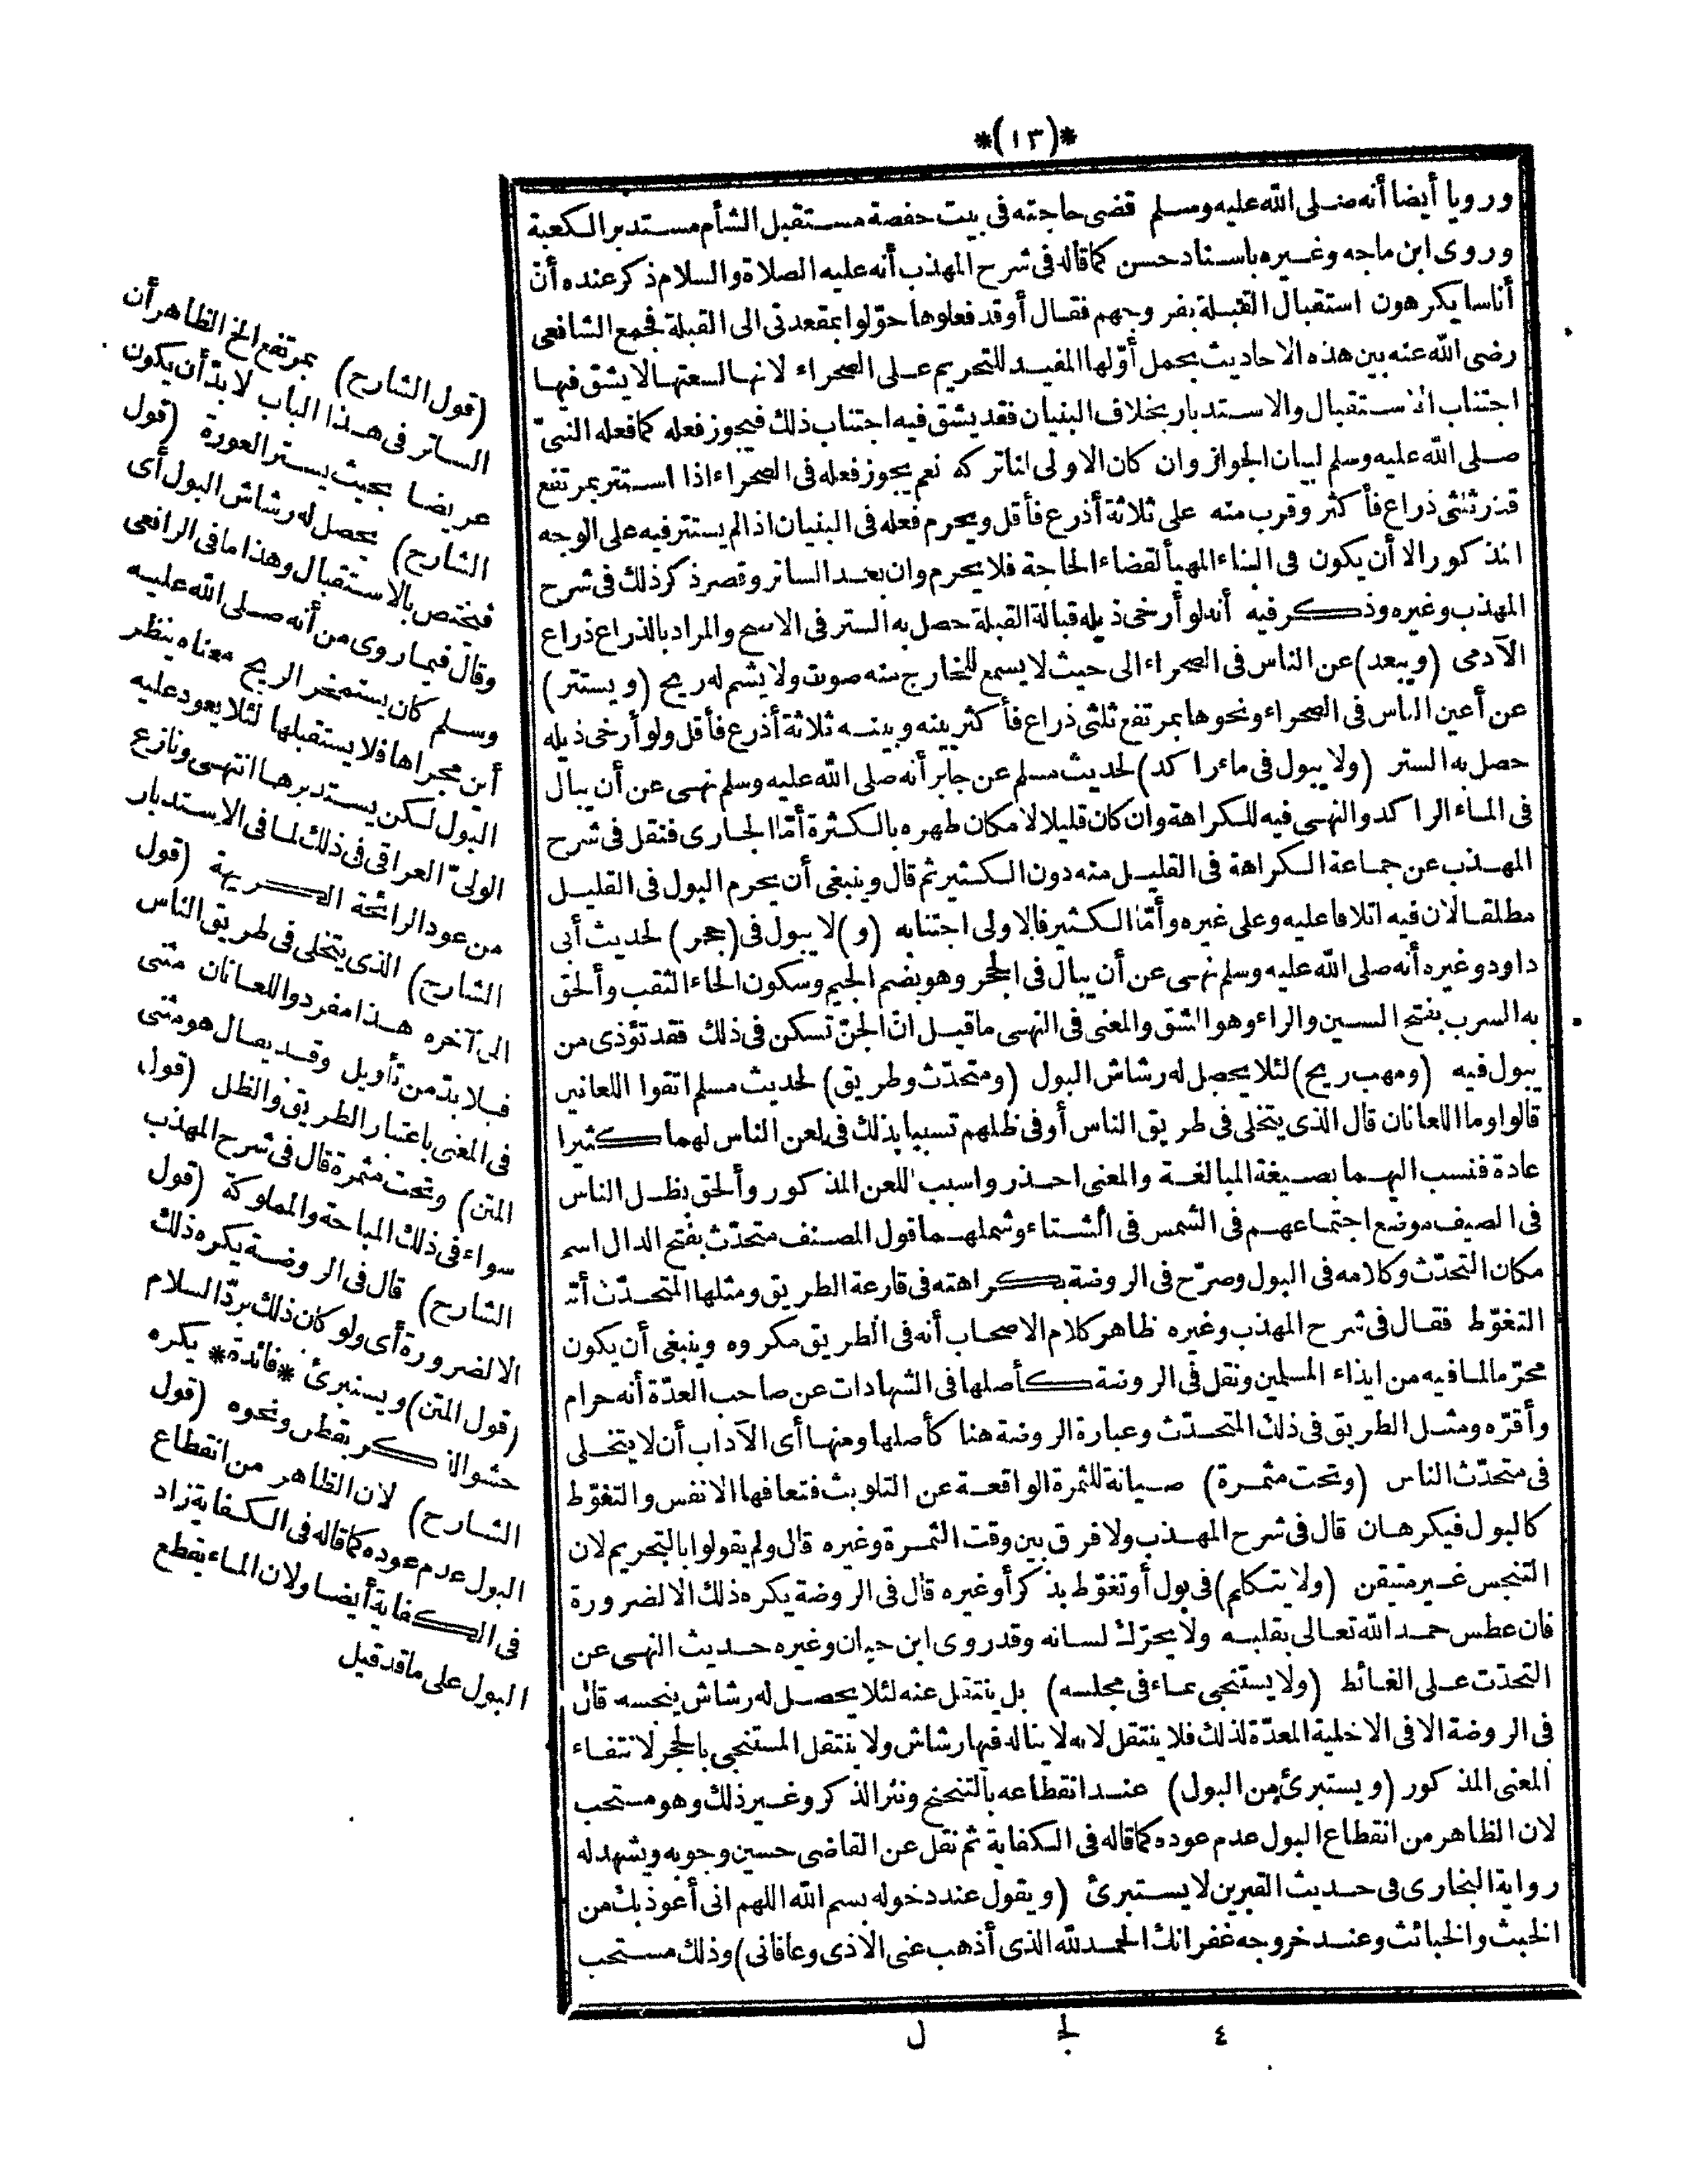 *(١٣)*
ورويا أيضا أنه صلى الله عليه وسلم قضى حاجته فى بيت حفصة مستقبل الشأم مستدبر الكعبة
وروى ابن ماجه وغيره باسناد حسن كما قاله فى شرح المهذب أنه عليه الصلاة والسلام ذكر عنده أن
أناسا يكرهون استقبال القبلة بفروجهم فقال أوقد فعلوها حوّلوا بمقعدتى الى القبلة فجمع الشافعى
رضى الله عنه بين هذه الاحاديث بحمل أوّلها المفيد للتحريم على الصحراء لانها لسعتها لا يشق فيها
اجتناب الاستقبال والاستدبار بخلاف البنيان فقد يشق فيه اجتناب ذلك فيجوز فعله كما فعله النبىّ
صلى الله عليه وسلم لبيان الجواز وان كان الاولى لنا تركه نعم يجوز فعله فى الصحراء اذا استتر بمرتفع
قدر ثلثى ذراع فأكثر وقرب منه على ثلاثة أذرع فأقل ويحرم فعله فى البنيان اذا لم يستتر فيه على الوجه
المذكور الا أن يكون فى البناء المهيأ لقضاء الحاجة فلا يحرم وان بعد الساتر وقصر ذكر ذلك فى شرح
المهذب وغيره وذكر فيه أنه لو أرخى ذيله قبالة القبلة حصل به الستر فى الاصح والمراد بالذراع ذراع
الآدمى (ويبعد) عن الناس فى الصحراء الى حيث لا يسمع للخارج منه صوت ولا يشم له ريح (ويستتر)
عن أعين الناس فى الصحراء ونحوها بمرتفع ثلثى ذراع فأكثر بينه وبينه ثلاثة أذرع فأقل ولو أرخى ذيله
حصل به الستر (ولا يبول فى ماء راكد) لحديث مسلم عن جابر أنه صلى الله عليه وسلم نهى عن أن يبال
فى الماء الراكد والنهى فيه للكراهة وان كان قليلا لامكان طهره بالكثرة أمّا الجارى فنقل فى شرح
المهذب عن جماعة الكراهة فى القليل منه دون الكثير ثم قال وينبغى أن يحرم البول فى القليل
مطلقا لان فيه اتلافا عليه وعلى غيره وأمّا الكثير فالاولى اجتنابه (و) لا يبول فى (جحر) لحديث أبى
داود وغيره أنه صلى الله عليه وسلم نهى عن أن يبال فى الجحر وهو بضم الجيم وسكون الحاء الثقب وألحق
به السرب بفتح السين والراء وهو الشق والمعنى فى النهى ما قيل انّ الجنّ تسكن فى ذلك فقد تؤذى من
يبول فيه (ومهب ريح) لئلا يحصل له رشاش البول (ومتحدّث وطريق) لحديث مسلم اتقوا اللعانين
قالوا وما اللعانان قال الذى يتخلى فى طريق الناس أو فى ظلهم تسببا بذلك فى لعن الناس لهما كثيرا
عادة فنسب اليهما بصيغة المبالغة والمعنى احذروا سبب اللعن المذكور وألحق بظل الناس
فى الصيف موضع اجتماعهم فى الشمس فى الشتاء وشملهما قول المصنف متحدّث بفتح الدال اسم
مكان التحدّث وكلامه فى البول وصرّح فى الروضة بكراهته فى قارعة الطريق ومثلها المتحدّث أمّا
التغوّط فقال فى شرح المهذب وغيره ظاهر كلام الاصحاب أنه فى الطريق مكروه وينبغى أن يكون
محرّما لما فيه من ايذاء المسلمين ونقل فى الروضة كأصلها فى الشهادات عن صاحب العدّة أنه حرام
وأقرّه ومثل الطريق فى ذلك المتحدّث وعبارة الروضة هنا كأصلها ومنها أى الآداب أن لا يتخلى
فى متحدّث الناس (وتحت مثمرة) صيانة للثمرة الواقعة عن التلويث فتعافها الانفس والتغوّط
كالبول فيكرهان قال فى شرح المهذب ولا فرق بين وقت الثمرة وغيره قال ولم يقولوا بالتحريم لان
التنجس غير متيقن (ولا يتكلم) فى بول أو تغوّط بذكر أو غيره قال فى الروضة يكره ذلك الا لضرورة
فان عطس حمد الله تعالى بقلبه ولا يحرّك لسانه وقد روى ابن حبان وغيره حديث النهى عن
التحدّث على الغائط (ولا يستنجى بماء فى مجلسه) بل ينتقل عنه لئلا يحصل له رشاش ينجسه قال
فى الروضة الا فى الاخلية المعدّة لذلك فلا ينتقل لانه لا يناله فيها رشاش ولا ينتقل المستنجى بالحجر لانتفاء
المعنى المذكور (ويستبرئ من البول) عند انقطاعه بالتنحنح ونتر الذكر وغير ذلك وهو مستحب
لان الظاهر من انقطاع البول عدم عوده كما قاله فى الكفاية ثم نقل عن القاضى حسين وجوبه ويشهد له
رواية البخارى فى حديث القبرين لا يستبرئ (ويقول عند دخوله بسم الله اللهم انى أعوذ بك من
الخبث والخبائث وعند خروجه غفرانك الحمد لله الذى أذهب عنى الاذى وعافانى) وذلك مستحب
(قول الشارح) بمرتفع الخ الظاهر أن
الساتر فى هذا الباب لا بدّ أن يكون
عريضا بحيث يستر العورة (قول
الشارح) يحصل له رشاش البول أى
فيختص بالاستقبال وهذا ما فى الرافعى
وقال فيما روى من أنه صلى الله عليه
وسلم كان يستمخر الريح معناه ينظر
أين مجراها فلا يستقبلها لئلا يعود عليه
البول لكن يستدبرها انتهى ونازع
الولىّ العراقى فى ذلك لما فى الاستدبار
من عود الرائحة الكريهة (قول
الشارح) الذى يتخلى فى طريق الناس
الى آخره هذا مفرد واللعانان مثنى
فلا بدّ من تأويل وقد يقال هو مثنى
فى المعنى باعتبار الطريق والظل (قول
المتن) وتحت مثمرة قال فى شرح المهذب
سواء فى ذلك المباحة والمملوكة (قول
الشارح) قال فى الروضة يكره ذلك
الا لضرورة أى ولو كان ذلك بردّ السلام
(قول المتن) ويستبرئ *فائدة* يكره
حشو الذكر بقطن ونحوه (قول
الشارح) لان الظاهر من انقطاع
البول عدم عوده كما قاله فى الكفاية زاد
فى الكفاية أيضا ولان الماء يقطع
البول على ما قد قيل
٤ لج ل